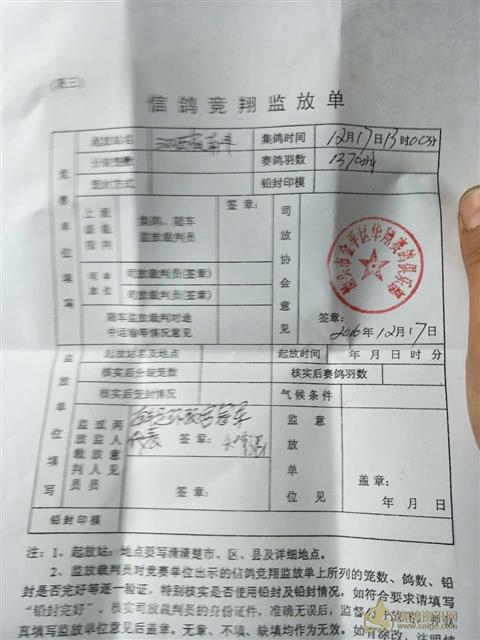 (表三)
信鸽竞翔监放单
司放站名 江西省 集鸽时间 12月17日13时00分
分笼笼数 赛鸽羽数 1376羽
笼封方式 铅封印模
竞赛单位填写
上级裁判 集鸽、随车监放裁判员 签章：
司放协会意见
司放裁判员(签章)
司放裁判员(签章)
随车监放裁判对途中运输等情况意见
签章：
2016年12月17日
监放单位填写
起放站名及地点 起放时间 年月日时分
核实后分装笼数 核实后赛鸽羽数
核实后笼封情况 气候条件
监或两放监人裁放意判人见员员
代表 签章：
签章：
监放单位意见
盖章：
年 月 日
铅封印模
注：1、起放站：地点要写清清楚市、区、县及详细地点。
2、监放裁判员对竞赛单位出示的信鸽竞翔监放单上所列的笼数、鸽数、铅
封是否完好等逐一验证，特别核实是否使用铅封及铅封情况，如符合要求请填写
“铅封完好”。核实司放裁判员的身份证件，准确无误后，监督
真填写监放单位意见后盖章、无章、不填、缺填均作为无效。如有涂改、注明情